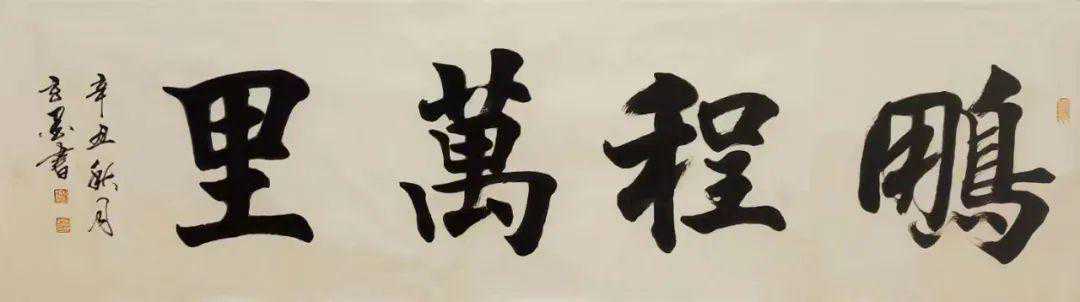 鵬程萬里
辛丑秋月
墨書